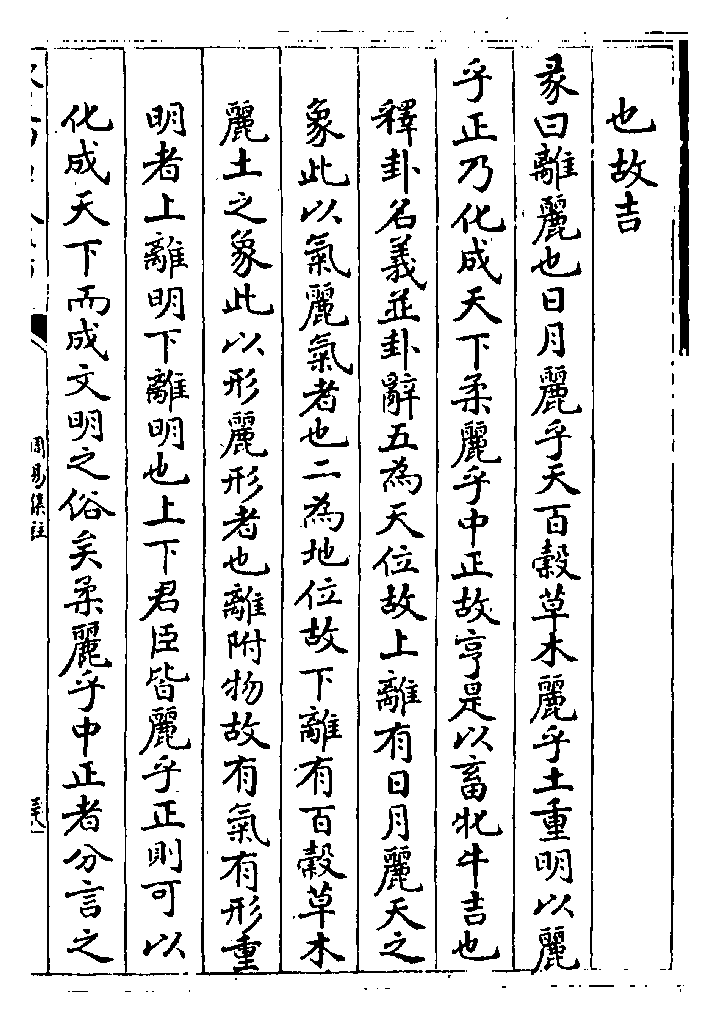 也故吉
彖曰離麗也日月麗乎天百穀草木麗乎土重明以麗
乎正乃化成天下柔麗乎中正故亨是以畜牝牛吉也
釋卦名義並卦辭五為天位故上離有日月麗天之
象此以氣麗氣者也二為地位故下離有百穀草木
麗土之象此以形麗形者也離附物故有氣有形重
明者上離明下離明也上下君臣皆麗乎正則可以
化成天下而成文明之俗矣柔麗乎中正者分言之
周易集註